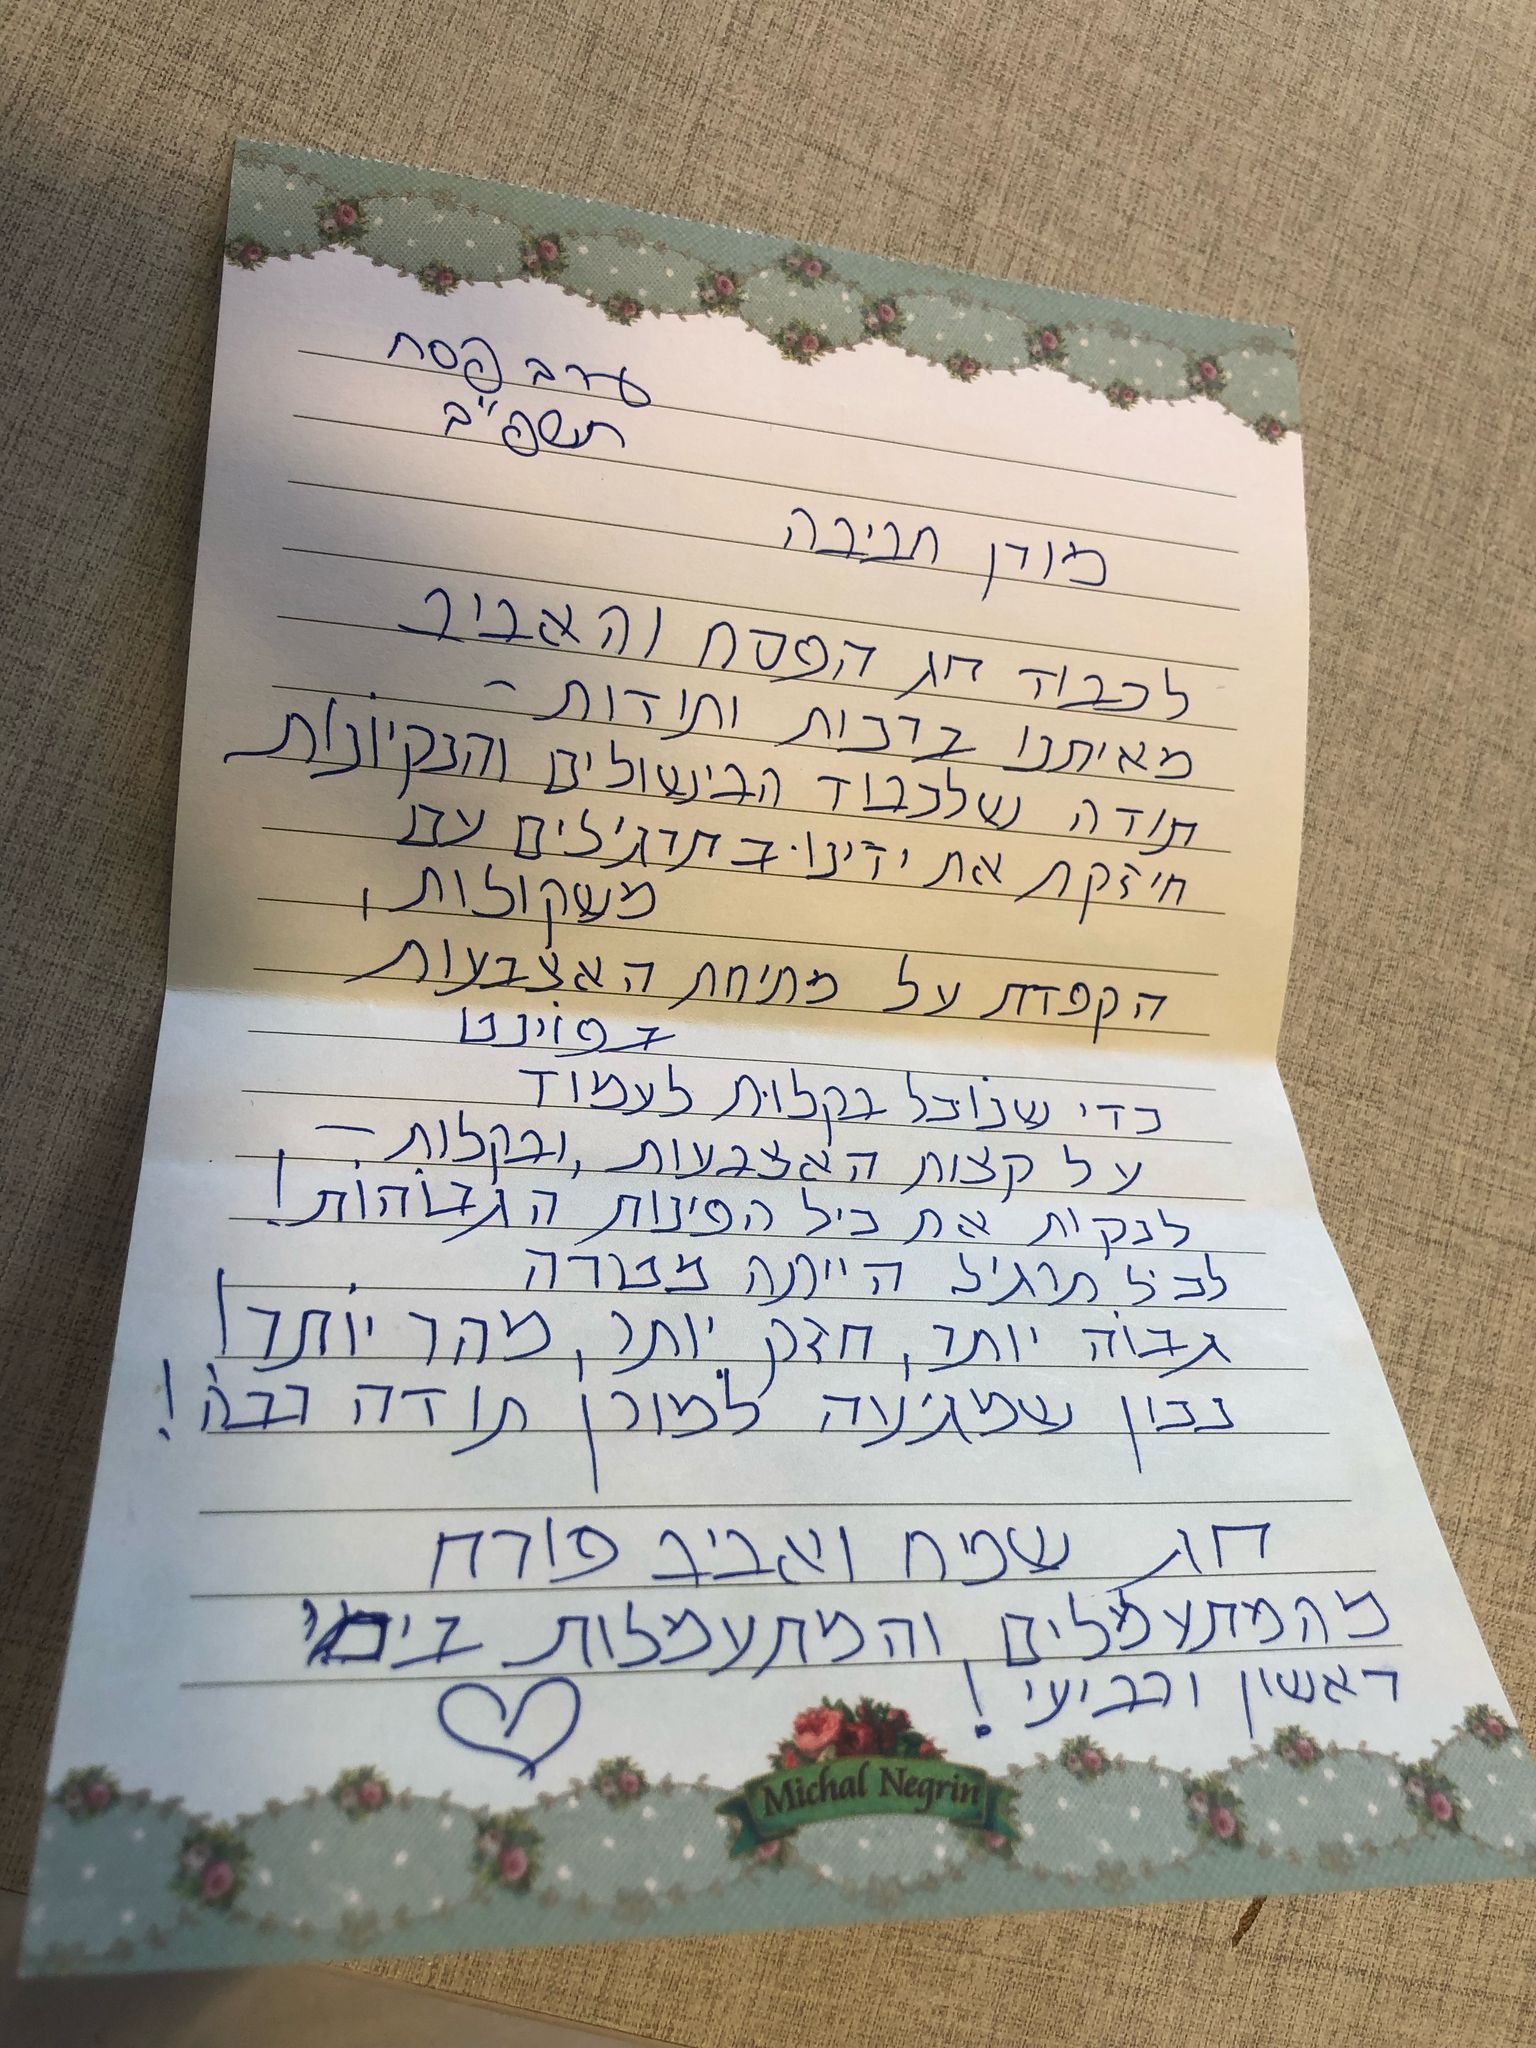 ערב פסח
תשפ"ב
מורן חביבה
לכבוד חג הפסח והאביב
מאיתנו ברכות ותודות -
תודה שלכבוד הבישולים והנקיונות
חיזקת את ידינו בתרגילים עם
משקולות,
הקפדת על מתיחת האצבעות
בפוינט
כדי שנוכל בקלות לעמוד
על קצות האצבעות, ובקלות -
לנקות את כל הפינות הגבוהות!
לכל תרגיל הייתה מטרה
גבוה יותר, חזק יותר, מהר יותר!
נכון שמגיעה למורן תודה רבה!
חג שמח ואביב פורח
מהמתעמלים והמתעמלות בימי
ראשון ורביעי!
Michal Negrin